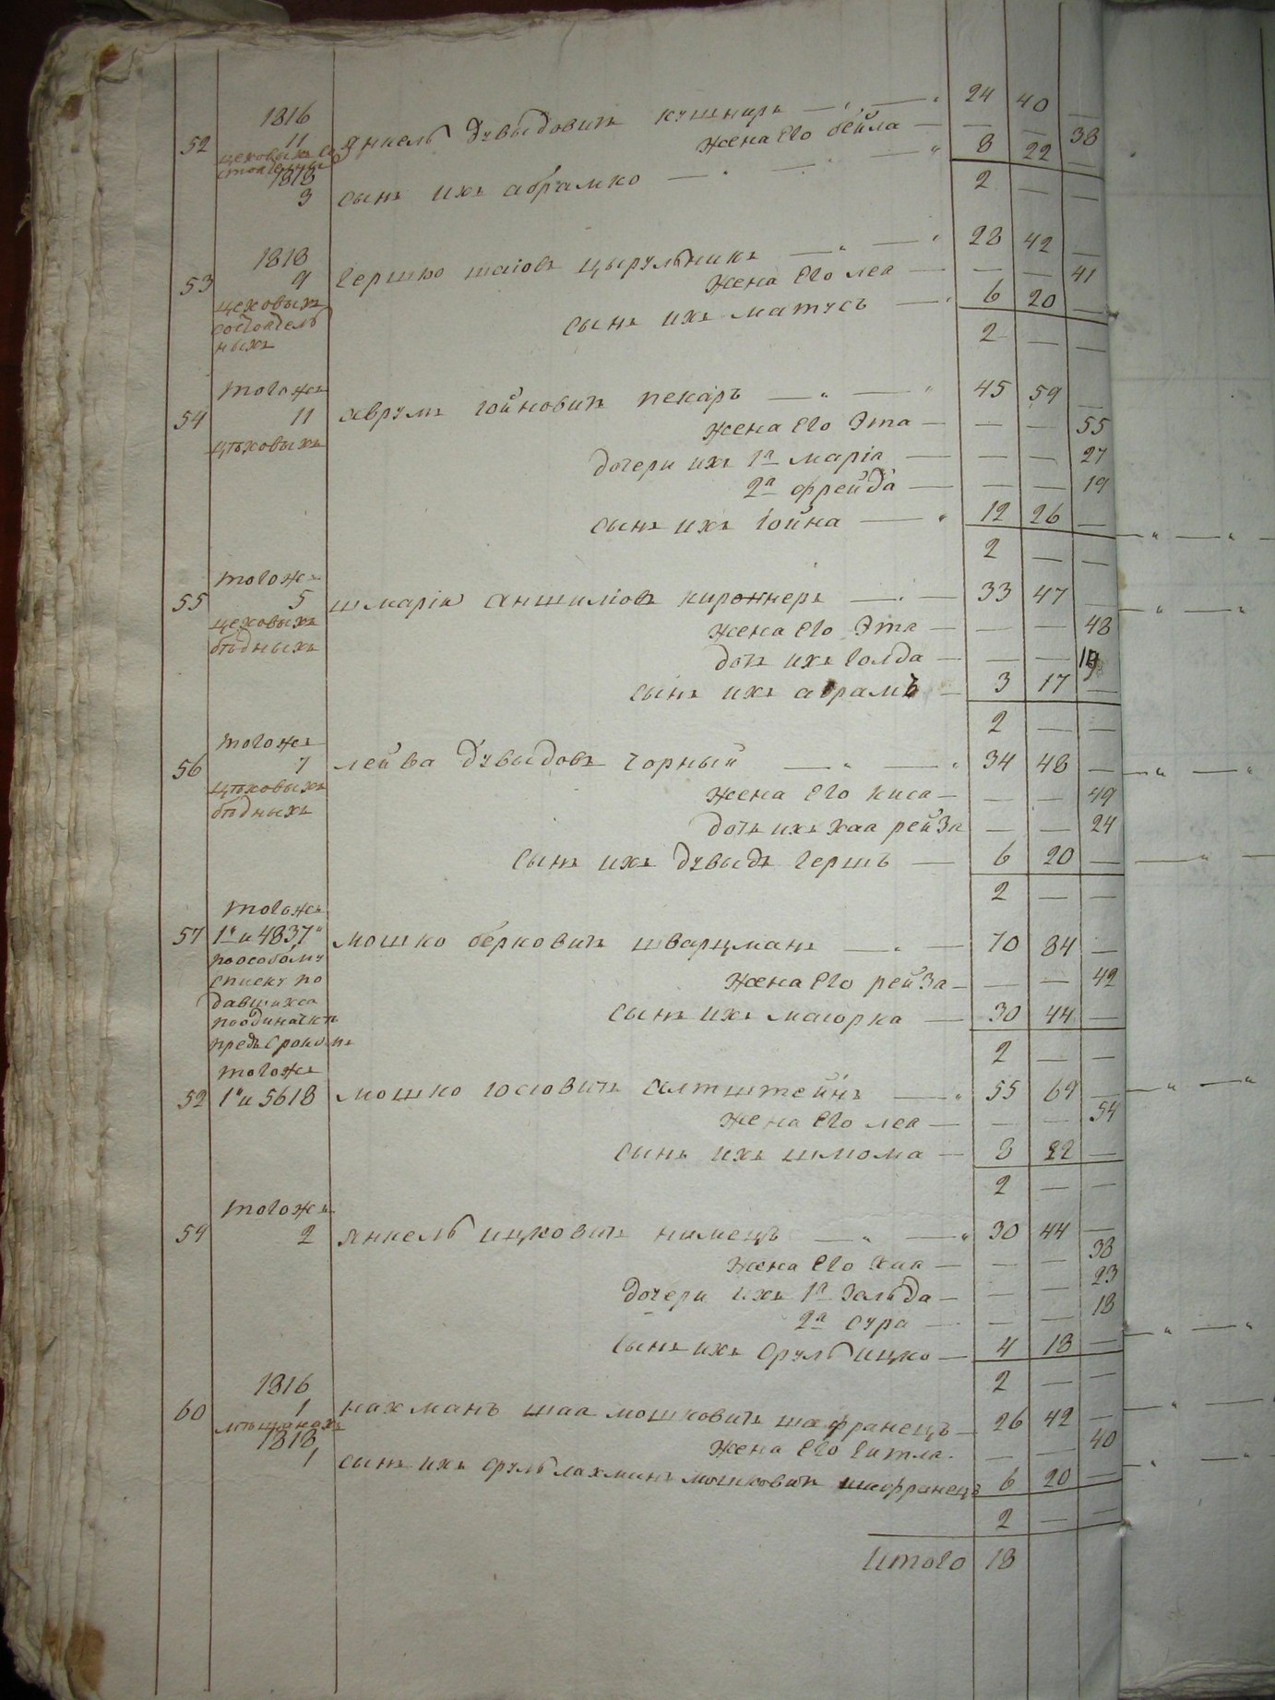 1816 24 40 —
52 11 Янкель Дувыдовичъ Кушниръ
цеховыхъ Жена Его Бейла — — — 38
1818 8 22 —
3 Сынъ ихъ Абрамко 2 — —
1818 28 42 —
53 9 Гершко Шаiовъ Цырульникъ
цеховыхъ Жена Его Леа — — — 41
состоятель Сынъ ихъ Матусъ — 6 20 —
ныхъ 2 — —
тогожъ 45 59 —
54 11 Хврумъ Гойновичъ Пекаръ
цѣховыхъ Жена Его Эта — — — 55
Дочери ихъ 1я Марiа — — — 27
2я Фрейда — — — 19
Сынъ ихъ Гойна — 12 26 —
2 — —
тогожъ
55 5 Шмарiа Аншилiовъ — 33 47 —
цеховыхъ Жена Его Эта — — — 48
бѣдныхъ Дочь ихъ Голда — — —
Сынъ ихъ Абрамъ — 3 17 —
2 — —
тогожъ
56 7 Лейба Дувыдовъ Чорный — 34 48 —
цѣховыхъ Жена Его Киса — — — 49
бѣдныхъ Дочь ихъ Хаа Рейза — — 24
Сынъ ихъ Дувыдъ Гершъ — 6 20 —
2 — —
тогожъ
57 1й и 4837й Мошко Берковичъ Шварцманъ — 70 84 —
по особому
списку по Жена Его Рейза — — — 42
давшихса
по одиначкѣ Сынъ ихъ Маiорка — 30 44 —
предъ срокомъ 2 — —
тогожъ
52 1й и 5618 Мошко Iосiовичъ Алтштейнъ — 55 69 —
Жена Его Леа — — — 54
Сынъ ихъ Шлiома — 8 22 —
2 — —
тогожъ
59 2 Янкель Ицковичъ Нимецъ — 30 44 —
Жена Его Хаа — — — 38
Дочери ихъ 1я Зольда — — — 23
2я Сура — — — 18
Сынъ ихъ Сруль Ицко — 4 18 —
1816 2 — —
60 1 Нахманъ Шаа Мошковичъ Шафранецъ — 26 42 —
мѣщанахъ
1818 Жена Его Гитла — — 40
1 Сынъ ихъ Сруль Лахманъ Мошковичъ Шафранецъ 6 20 —
2 — —
Итого 18